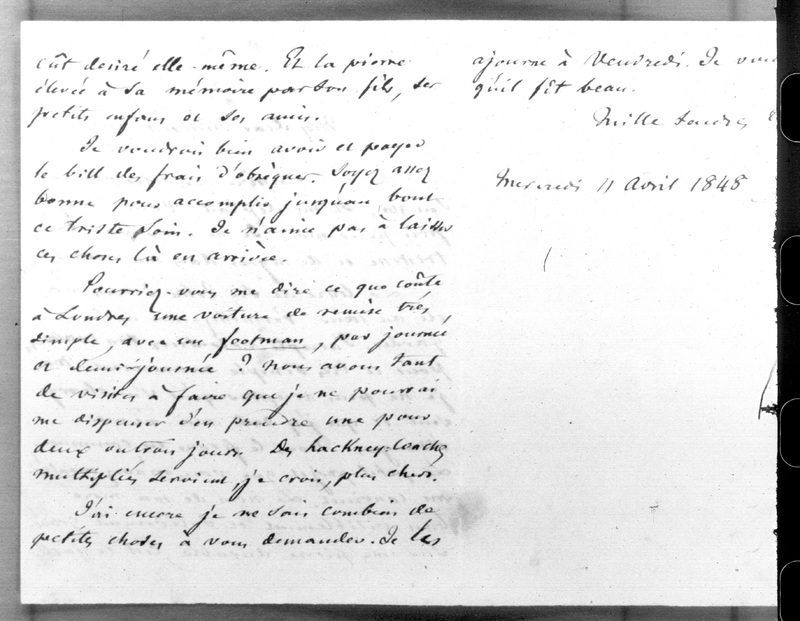 eût desiré elle-même. Et la pierre
élevée à sa mémoire par son fils, ses
petits enfans et ses amis.
Je voudrois bien avoir et payer
le bill des frais d'obsèques. Soyez assez
bonne pour accomplir jusqu'au bout
ce triste soin. Je n'aime pas à laisser
ces choses là en arrière.
Pourriez-vous me dire ce que coûte
à Londres une voiture de remise très
simple, avec un footman, par journée
et demi-journée ? Nous avons tant
de visites à faire que je ne pourrai
me dispenser d'en prendre une pour
deux ou trois jours. Des hackney-coaches
multipliés seroient, je crois, plus chers.
J'ai encore je ne sais combien de
petites choses à vous demander. Je les
ajourne à Vendredi. Je
qu'il fît beau.
Mille tendres
Mercredi 11 Avril 1848